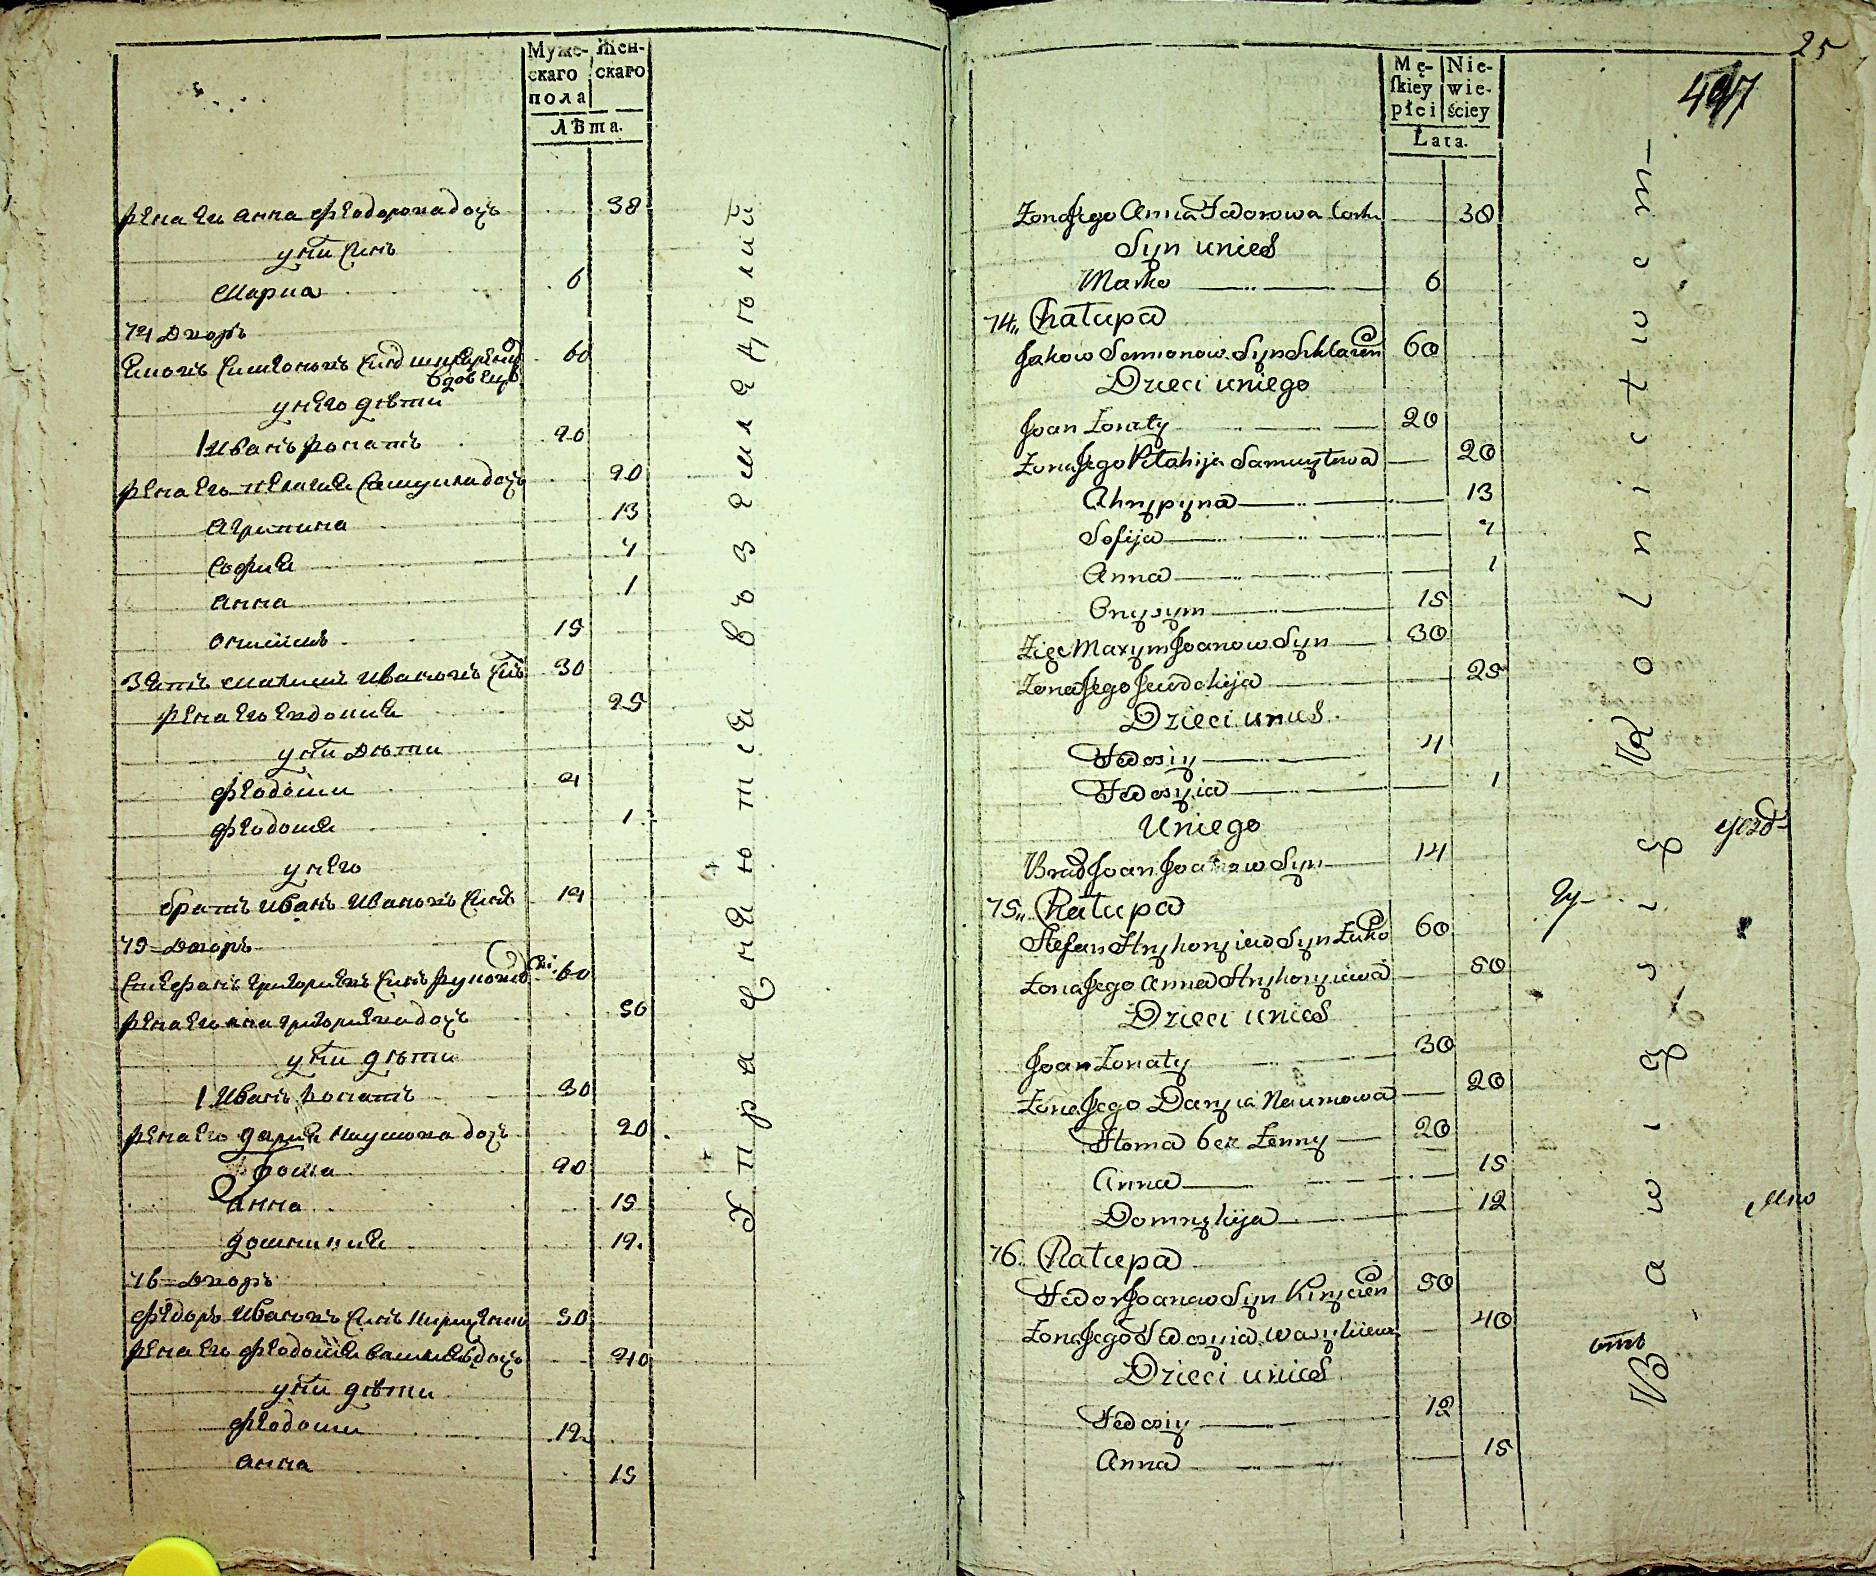 Муже-
скаго
пола
Жен-
скаго
Лѣта.
жена ей анна федорова доч 38
у нй синъ
Марка 6
74 Дворъ
Яковъ Семионовъ синъ
вдовецъ 60
у него дѣти
Иванъ жонатъ 20
жена его пелагия Самуила доч 20
Агрипина 13
София 7
Анна 1
Онисимъ 15
Зять Максимъ Ивановъ синъ 30
жена его евдокия 25
у нй дѣти
Феодосий 4
Феодосия 1
у него
братъ Иванъ Ивановъ синъ 14
75 = Дворъ
Стефанъ Григориевъ Синъ 60
жена его анна григориева доч 50
у нй дѣти
Иванъ жонатъ 30
жена его дария Наумова доч 20
Фома 20
Анна 15
домникия 12
76 = Дворъ
Федоръ Ивановъ Синъ 50
жена его Феодосия василиева доч 40
у нй дѣти
Феодосий 12
Анна 15
Упражняются въ земледѣлии
25
497
Mę-
skiey
płci
Nie-
wie-
ściey
Łata.
Żona Jego Anna Fedorowa Corka 38
Syn unich
Marko 6
74„ Chałupa
Jakow Semionow Syn Szklaren 60
Dzieci uniego
Joan Żonaty 20
Żona Jego Pelahija Samuyłowa 20
Ahrypyna 13
Sofija 7
Anna 1
Onysym 15
Zięc Maxym Joanow Syn 30
Żona Jego Jewdokija 25
Dzieci unich
Fedosiy 4
Fedosyia 1
Uniego
Brad Joan Joanow Syn 14
75„ Chałupa
Stefan Hryhoryiew Syn Żuko 60
Żona Jego Anna Hryhoryiewa 50
Dzieci unich
Joan Żonaty 30
Żona Jego Daryia Naumowa 20
Homa bez Żenny 20
Anna 15
Domnykija 12
76. Chałupa
Fedor Joanow Syn Kiryczen 50
Żona Jego Fedosyia Wasyliiewa 40
Dzieci unich
Fedosiy 12
Anna 15
Bawią się Rolnictwem